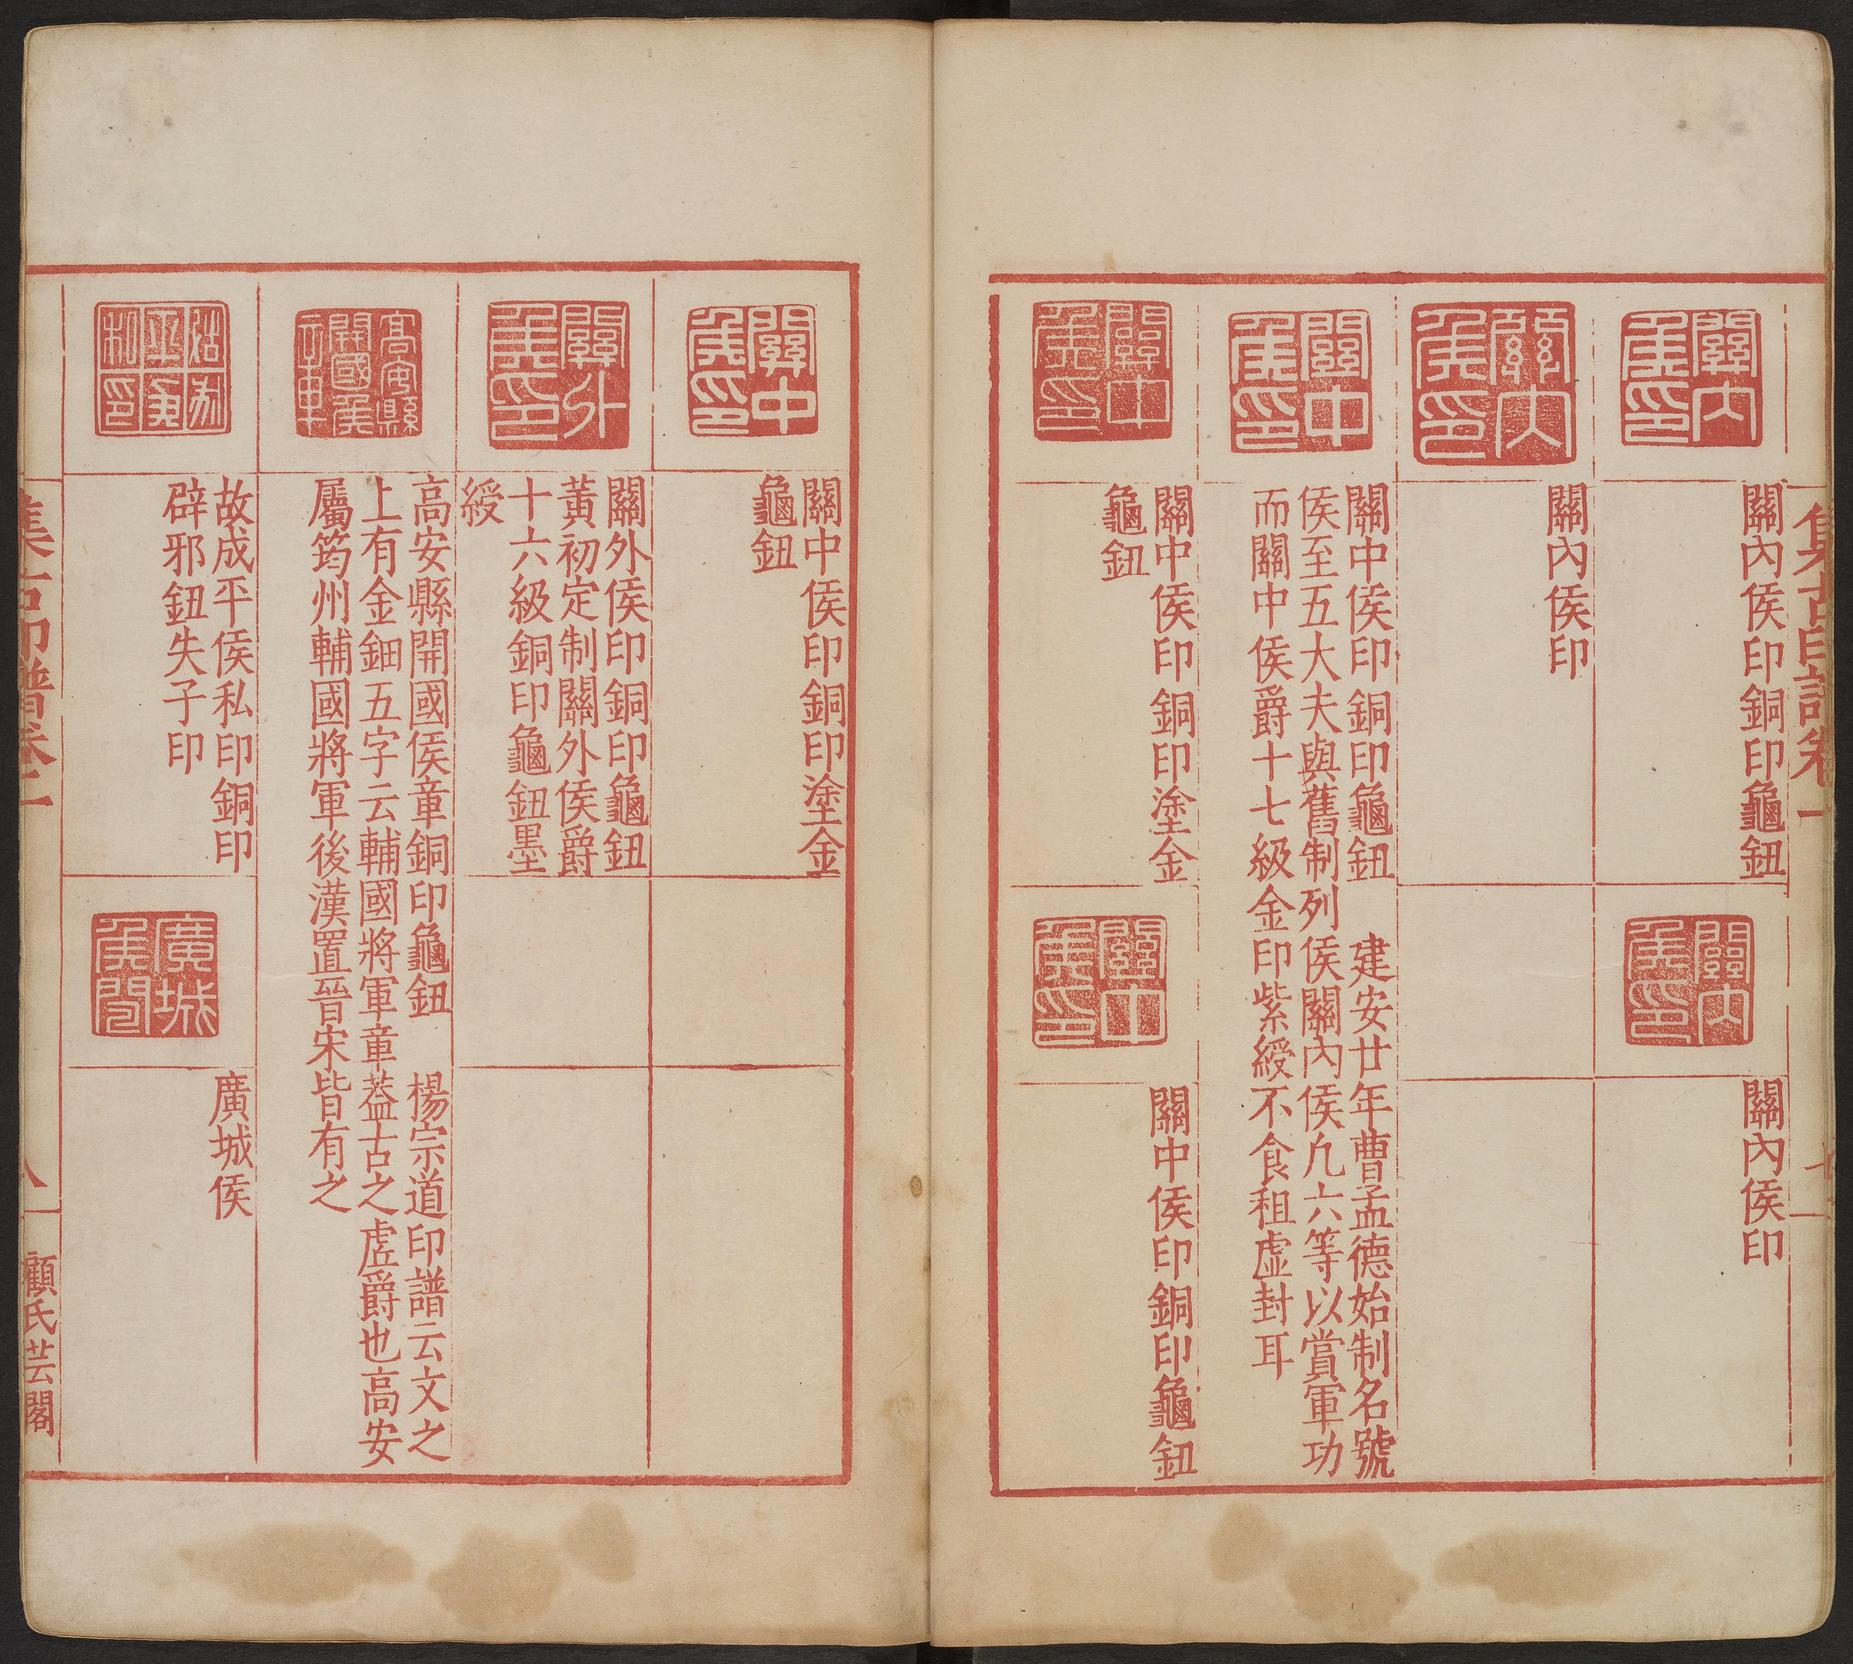 集古印譜卷一
七
關內侯印
關內侯印銅印龜鈕
關內侯印
關內侯印
關內侯印
關內侯印
關中侯印
關中侯印銅印龜鈕　建安廿年曹孟德始制名號
侯至五大夫與舊制列侯關內侯凢六等以賞軍功
而關中侯爵十七級金印紫綬不食租虛封耳
關中侯印
關中侯印銅印塗金
龜鈕
關中侯印
關中侯印銅印龜鈕
關中侯印
關中侯印銅印塗金
龜鈕
關外侯印
關外侯印銅印龜鈕
黃初定制關外侯爵
十六級銅印龜鈕墨
綬
高安縣開國侯章
高安縣開國侯章銅印龜鈕　楊宗道印譜云文之
上有金鈿五字云輔國將軍章葢古之虛爵也高安
屬筠州輔國將軍後漢置晉宋皆有之
故成平侯私印銅印
辟邪鈕失子印
廣城侯
集古印譜卷一
八
顧氏芸閣